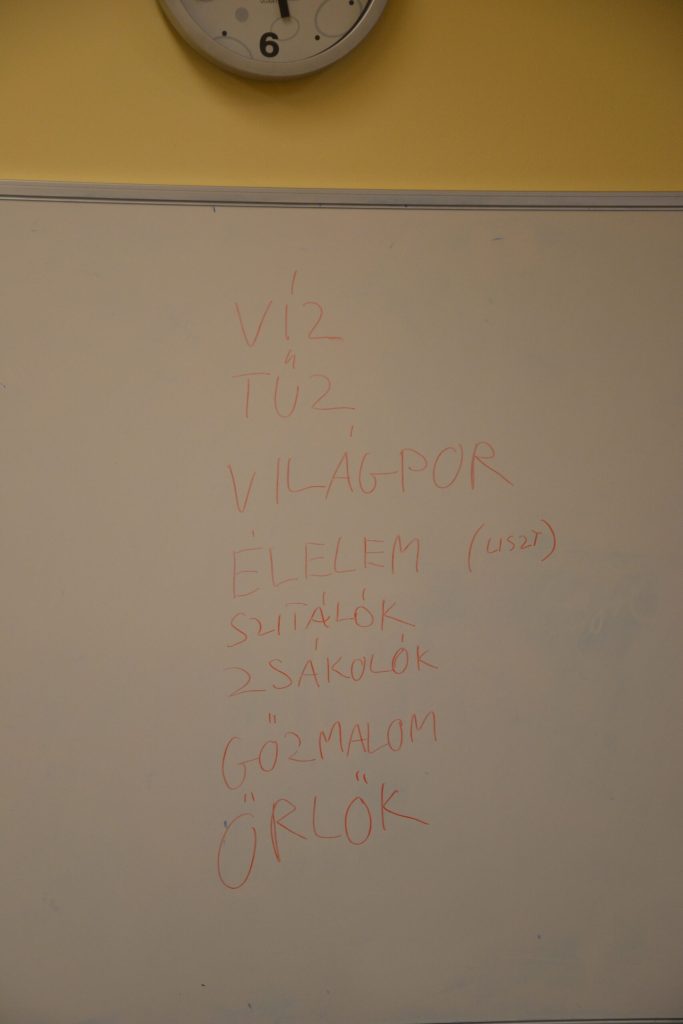 6
VÍZ
TŰZ
VILÁGPOR
ÉLELEM (LISZT)
SZITÁLÓK
ZSÁKOLÓK
GŐZMALOM
ŐRLŐK